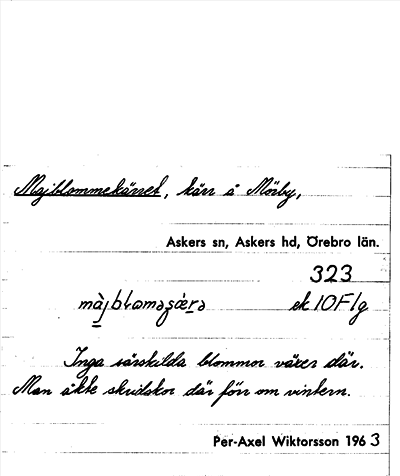 Majblommekärret, kärr å Mörby,
Askers sn, Askers hd, Örebro län.
323
ek 10F1g
Inga särskilda blommor växer där.
Man åkte skridskor där förr om vintern.
Per-Axel Wiktorsson 1963